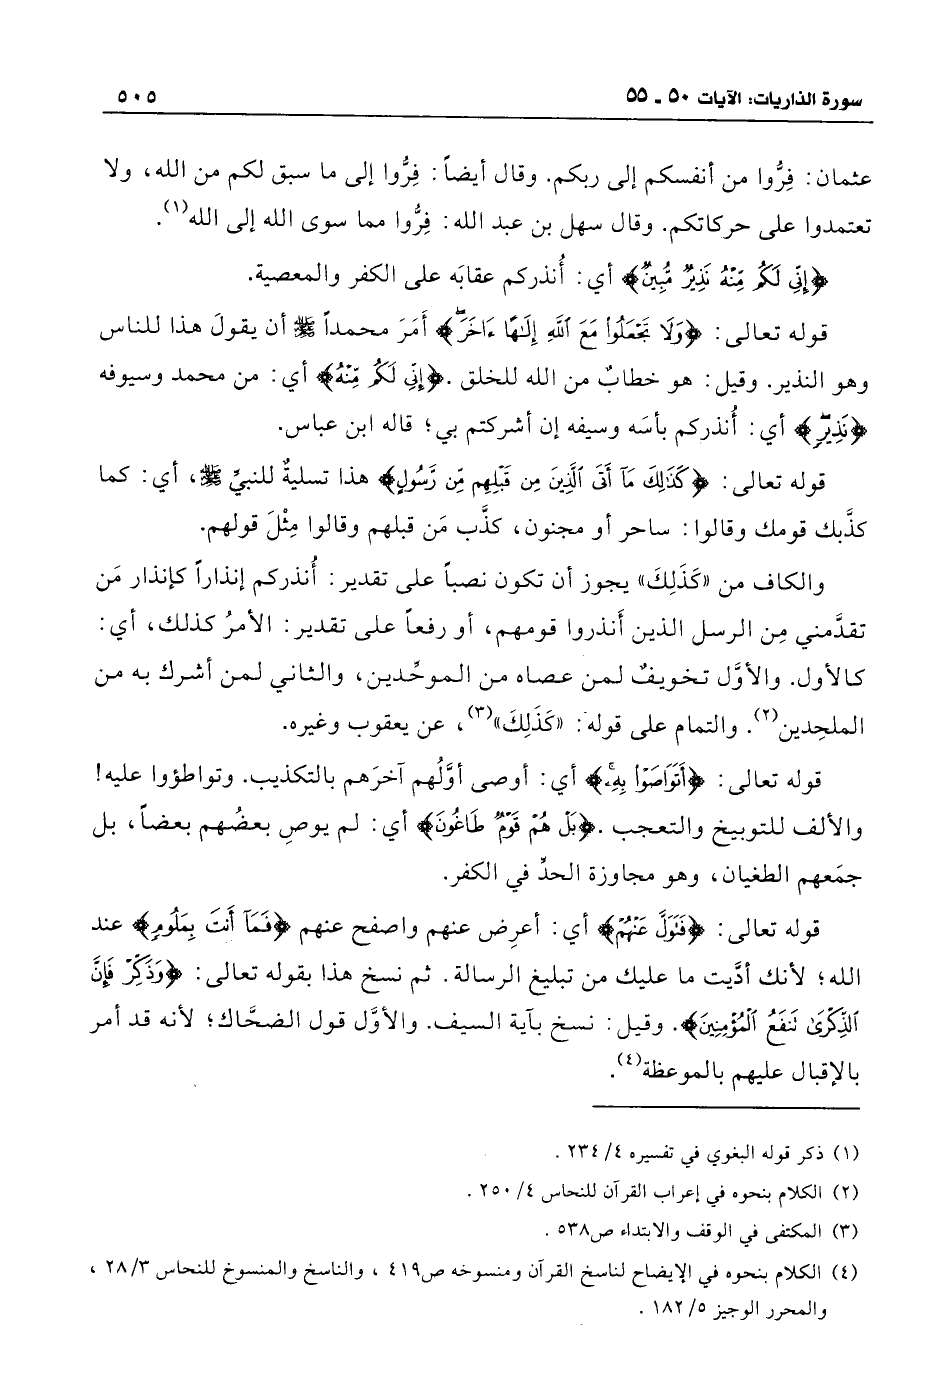 سورة الذاريات: الآيات ٥٠ ـ ٥٥ ٥٠٥
عثمان: فِرُّوا من أنفسكم إلى ربكم. وقال أيضاً: فِرُّوا إلى ما سبق لكم من الله، ولا
تعتمدوا على حركاتكم. وقال سهل بن عبد الله: فِرُّوا مما سوى الله إلى الله(١).
﴿إِنِّي لَكُم مِّنْهُ نَذِيرٌ مُّبِينٌ﴾ أي: أُنذركم عقابَه على الكفر والمعصية.
قوله تعالى: ﴿وَلَا تَجْعَلُوا۟ مَعَ ٱللَّهِ إِلَٰهًا ءَاخَرَ ۖ﴾ أَمَرَ محمداً ﷺ أن يقولَ هذا للناس
وهو النذير. وقيل: هو خطابٌ من الله للخلق .﴿إِنِّي لَكُم مِّنْهُ﴾ أي: من محمد وسيوفه
﴿نَذِيرٌ ۖ﴾ أي: أُنذركم بأسَه وسيفه إن أشركتم بي؛ قاله ابن عباس.
قوله تعالى: ﴿كَذَٰلِكَ مَآ أَتَى ٱلَّذِينَ مِن قَبْلِهِم مِّن رَّسُولٍ﴾ هذا تسليةٌ للنبيِّ ﷺ، أي: كما
كذَّبك قومك وقالوا: ساحر أو مجنون، كذَّب مَن قبلهم وقالوا مِثْلَ قولهم.
والكاف من «كَذَلِكَ» يجوز أن تكون نصباً على تقدير: أُنذركم إنذاراً كإنذار مَن
تقدَّمني مِن الرسل الذين أَنذروا قومهم، أو رفعاً على تقدير: الأمرُ كذلك، أي:
كالأول. والأوَّل تخويفٌ لمن عصاه من الموحِّدين، والثاني لمن أشرك به من
الملحِدين(٢). والتمام على قوله: «كَذَلِكَ»(٣)، عن يعقوب وغيره.
قوله تعالى: ﴿أَتَوَاصَوْا۟ بِهِۦ ۚ﴾ أي: أوصى أوَّلُهم آخرَهم بالتكذيب. وتواطؤوا عليه!
والألف للتوبيخ والتعجب .﴿بَلْ هُمْ قَوْمٌ طَاغُونَ﴾ أي: لم يوصِ بعضُهم بعضاً، بل
جمَعهم الطغيان، وهو مجاوزة الحدِّ في الكفر.
قوله تعالى: ﴿فَتَوَلَّ عَنْهُمْ﴾ أي: أعرِض عنهم واصفح عنهم ﴿فَمَآ أَنتَ بِمَلُومٍ﴾ عند
الله؛ لأنك أدَّيت ما عليك من تبليغ الرسالة. ثم نسخ هذا بقوله تعالى: ﴿وَذَكِّرْ فَإِنَّ
ٱلذِّكْرَىٰ تَنفَعُ ٱلْمُؤْمِنِينَ﴾. وقيل: نسخ بآية السيف. والأوَّل قول الضحَّاك؛ لأنه قد أمر
بالإقبال عليهم بالموعظة(٤).
(١) ذكر قوله البغوي في تفسيره ٤/ ٢٣٤ .
(٢) الكلام بنحوه في إعراب القرآن للنحاس ٤/ ٢٥٠ .
(٣) المكتفى في الوقف والابتداء ص٥٣٨ .
(٤) الكلام بنحوه في الإيضاح لناسخ القرآن ومنسوخه ص٤١٩ ، والناسخ والمنسوخ للنحاس ٣/ ٢٨ ،
والمحرر الوجيز ٥/ ١٨٢ .